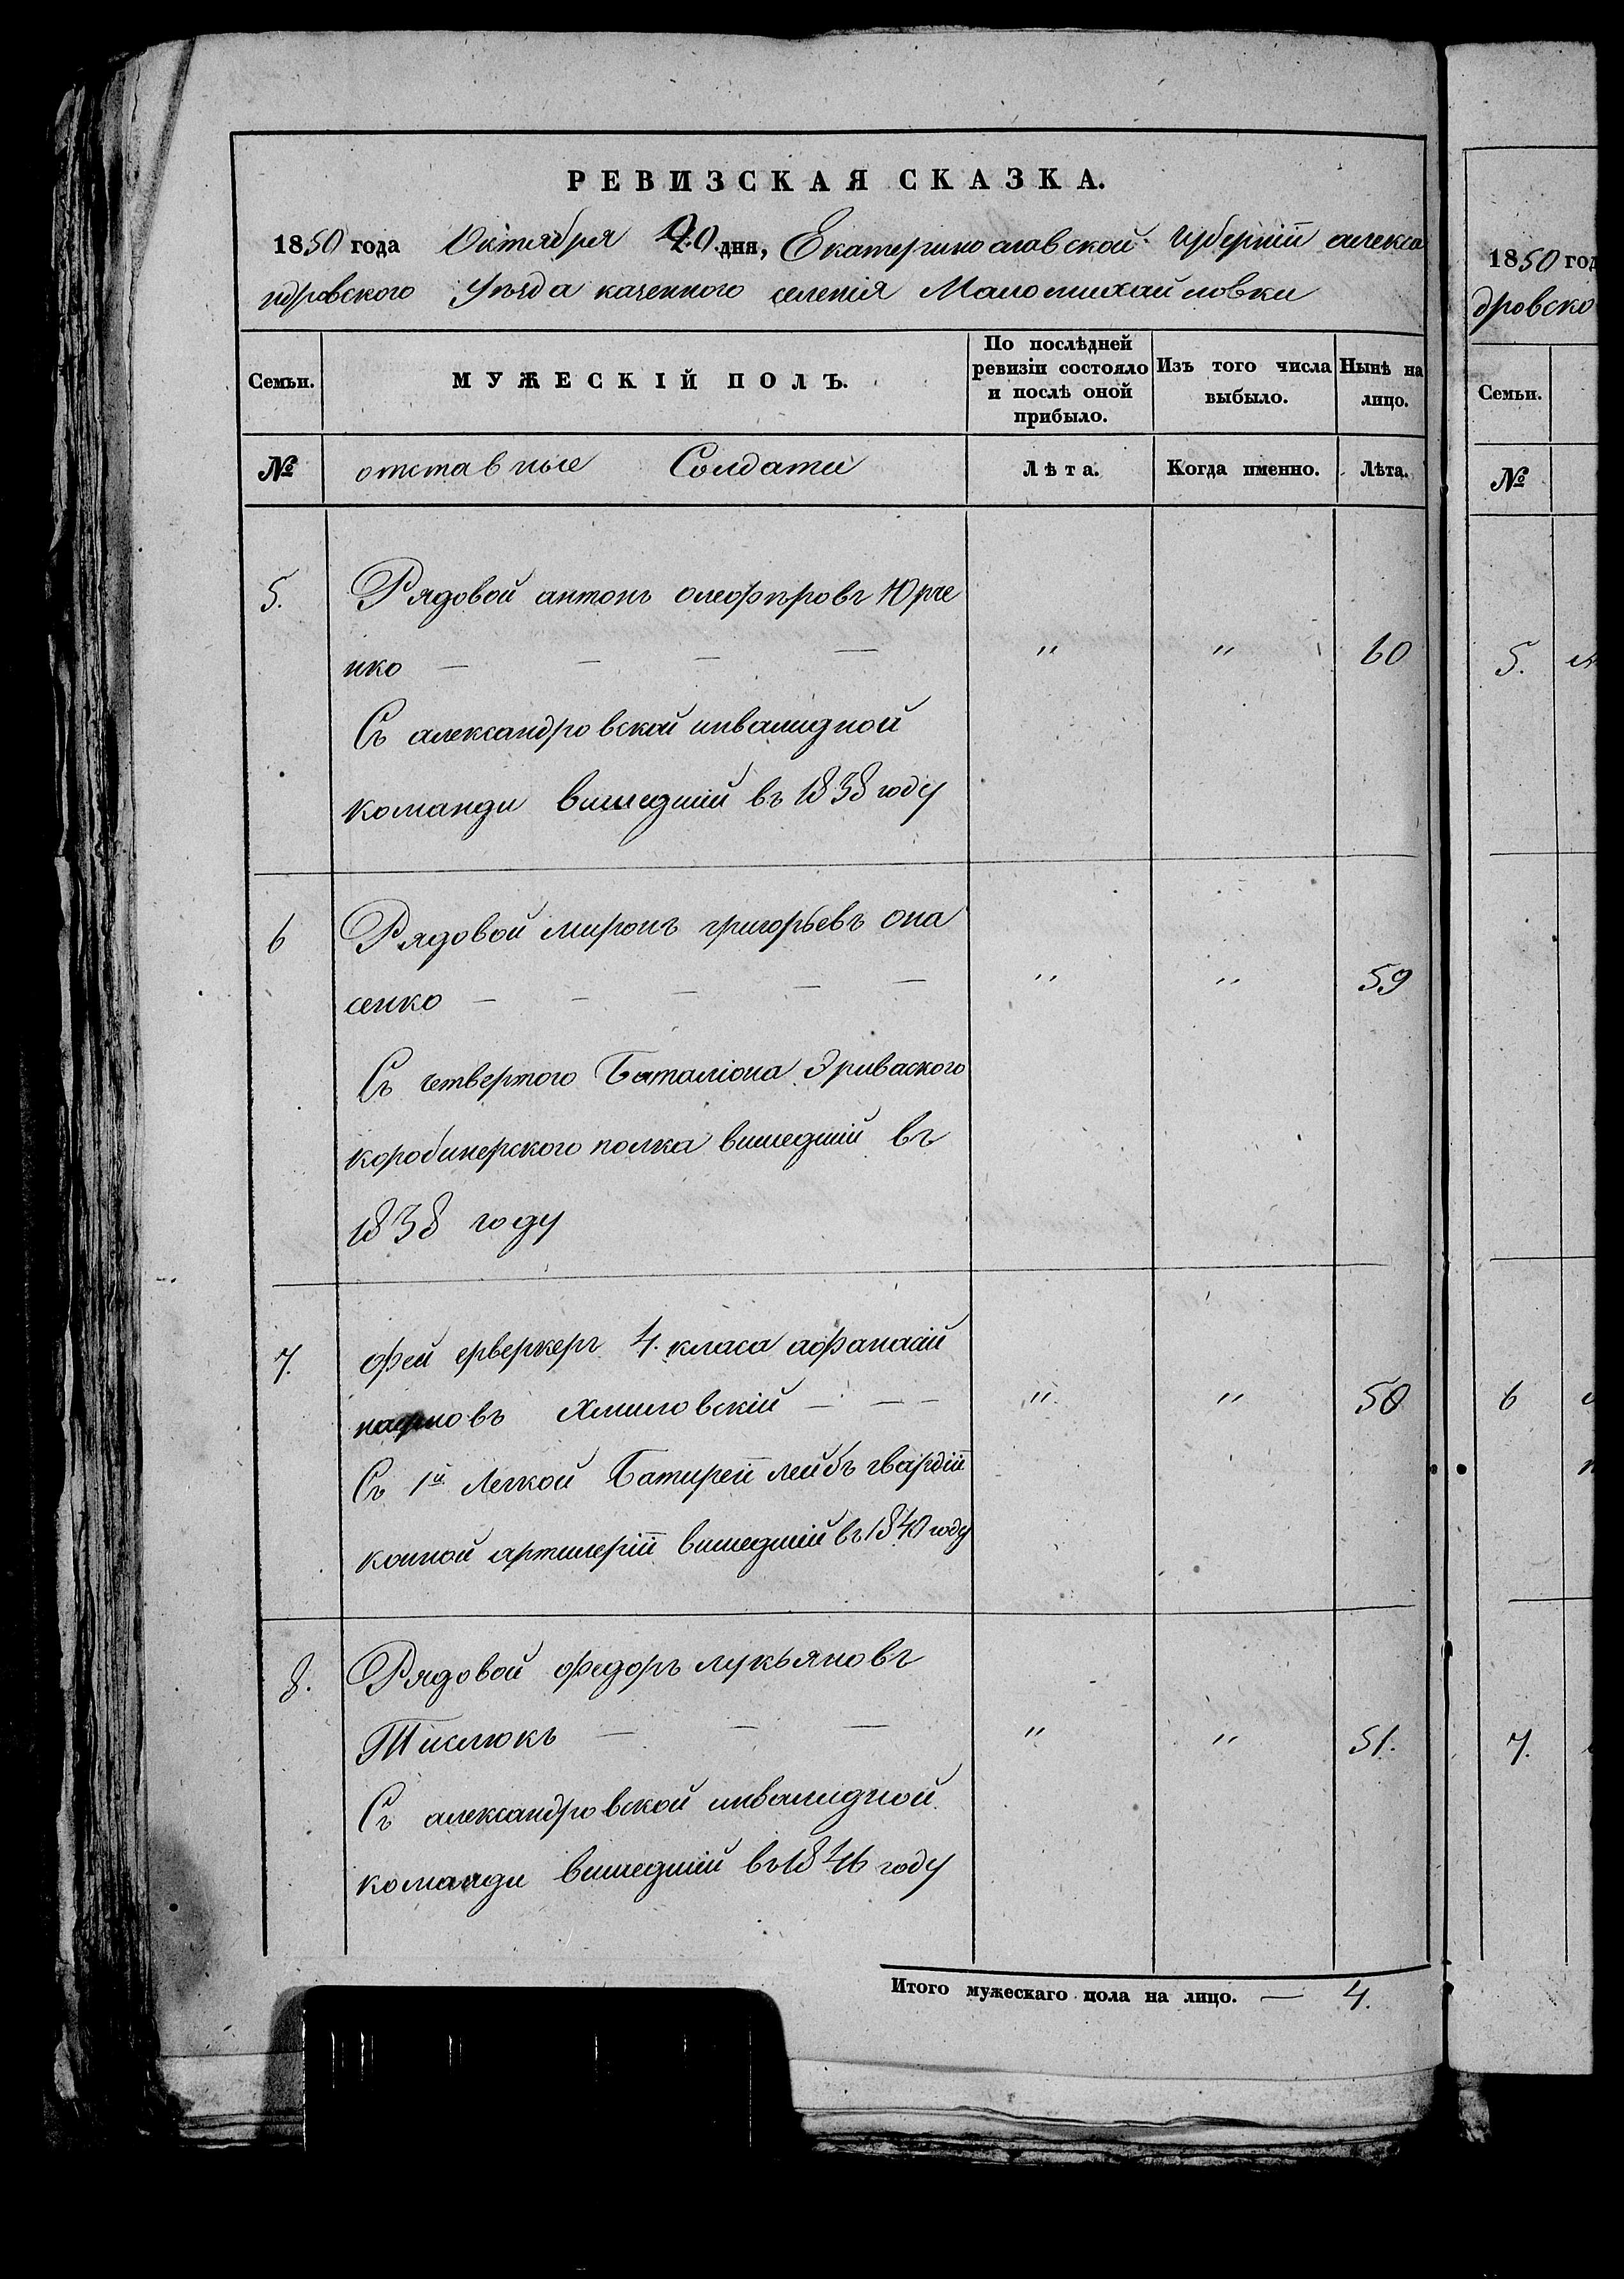 РЕВИЗСКАЯ СКАЗКА.
1850 года Октября 20 дня, Екатеринославской Губерніи алекса
ндровского Уезда казенного селенія Маломихайловки
Семьи.
МУЖЕСКІЙ ПОЛЪ.
По послѣдней ревизіи состояло и послѣ оной прибыло.
Изъ того числа выбыло.
Нынѣ на лицо.
№
отставные Солдати
Лѣта.
Когда именно.
Лѣта.
5. Рядовой антонъ Юрче
нко — — — — " " 60
Съ александровской инвалидной
команди вишедшій въ 1838 году
6 Рядовой миронъ григорьевъ Опа
сенко — — — — — " " 59
Съ четвертого Баталіона Эриваского
коробинерского полка вишедшій въ
1838 году
7. фей ерверкеръ 4. класа афанасій
Хмиловскій — — — " " 50
Съ 1й Легкой Батиреи лейбъ гвардіи
конной артилеріи вишедшій въ 1840 году
8. Рядовой федоръ лукьяновъ
Тислюкъ — — — " " 51.
Съ александровской инвалидной
команди вишедшій въ 1846 году
Итого мужескаго пола на лицо. — 4.
1850 год
дровско
Семьи.
№
5.
6
7.